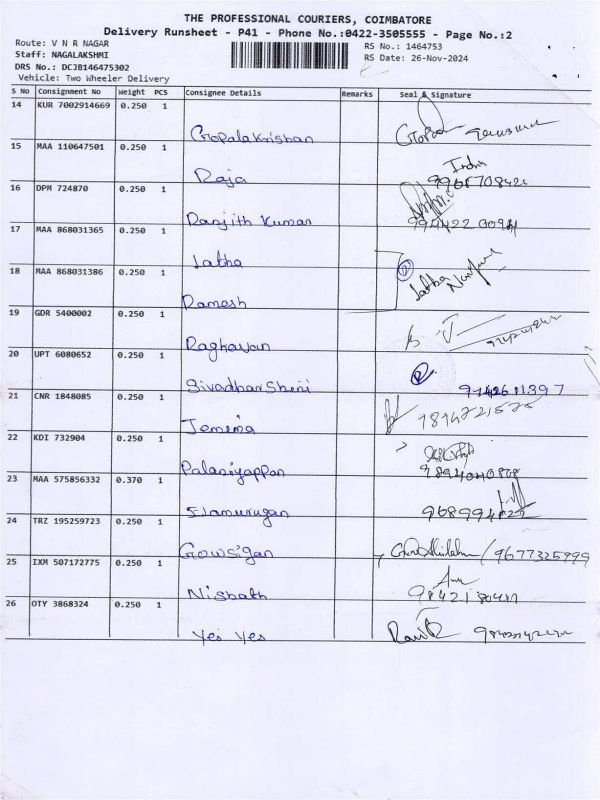 THE PROFESSIONAL COURIERS, COIMBATORE
Delivery Runsheet - P41 - Phone No.:0422-3505555 - Page No.:2
Route: V N R NAGAR RS No.: 1464753
Staff: NAGALAKSHMI RS Date: 26-Nov-2024
DRS No.: DCJB146475302
Vehicle: Two Wheeler Delivery
S No Consignment No Weight PCS Consignee Details Remarks Seal & Signature
14 KUR 7002914669 0.250 1
Gopalakrishan
15 MAA 110647501 0.250 1
Raja
16 DPM 724870 0.250 1
Ranjith Kumar
17 MAA 868031365 0.250 1
Latha
18 MAA 868031386 0.250 1 Latha
Ramesh
19 GDR 5400002 0.250 1
Raghavan
20 UPT 6080652 0.250 1
Sivadharshini
21 CNR 1848085 0.250 1
Jemima
22 KDI 732904 0.250 1
Palaniyappan
23 MAA 575856332 0.370 1
Elamurugan
24 TRZ 195259723 0.250 1
Gowsigan 9677325999
25 IXM 507172775 0.250 1
Nisbath
26 OTY 3868324 0.250 1
Yes Yes